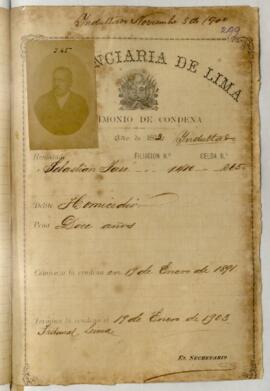 Indultado Noviembre 3 de 1900
299
245
NCIARIA DE LIMA
IMONIO DE CONDENA
Indultado
Rematado FILIACION N.º CELDA N.º
Sebastian 245
Delito Homicidio
Pena Doce años
Comienza la condena en 19 de Enero de 1891
Termina la condena el 19 de Enero de 1903
Tribunal Lima
EL SECRETARIO